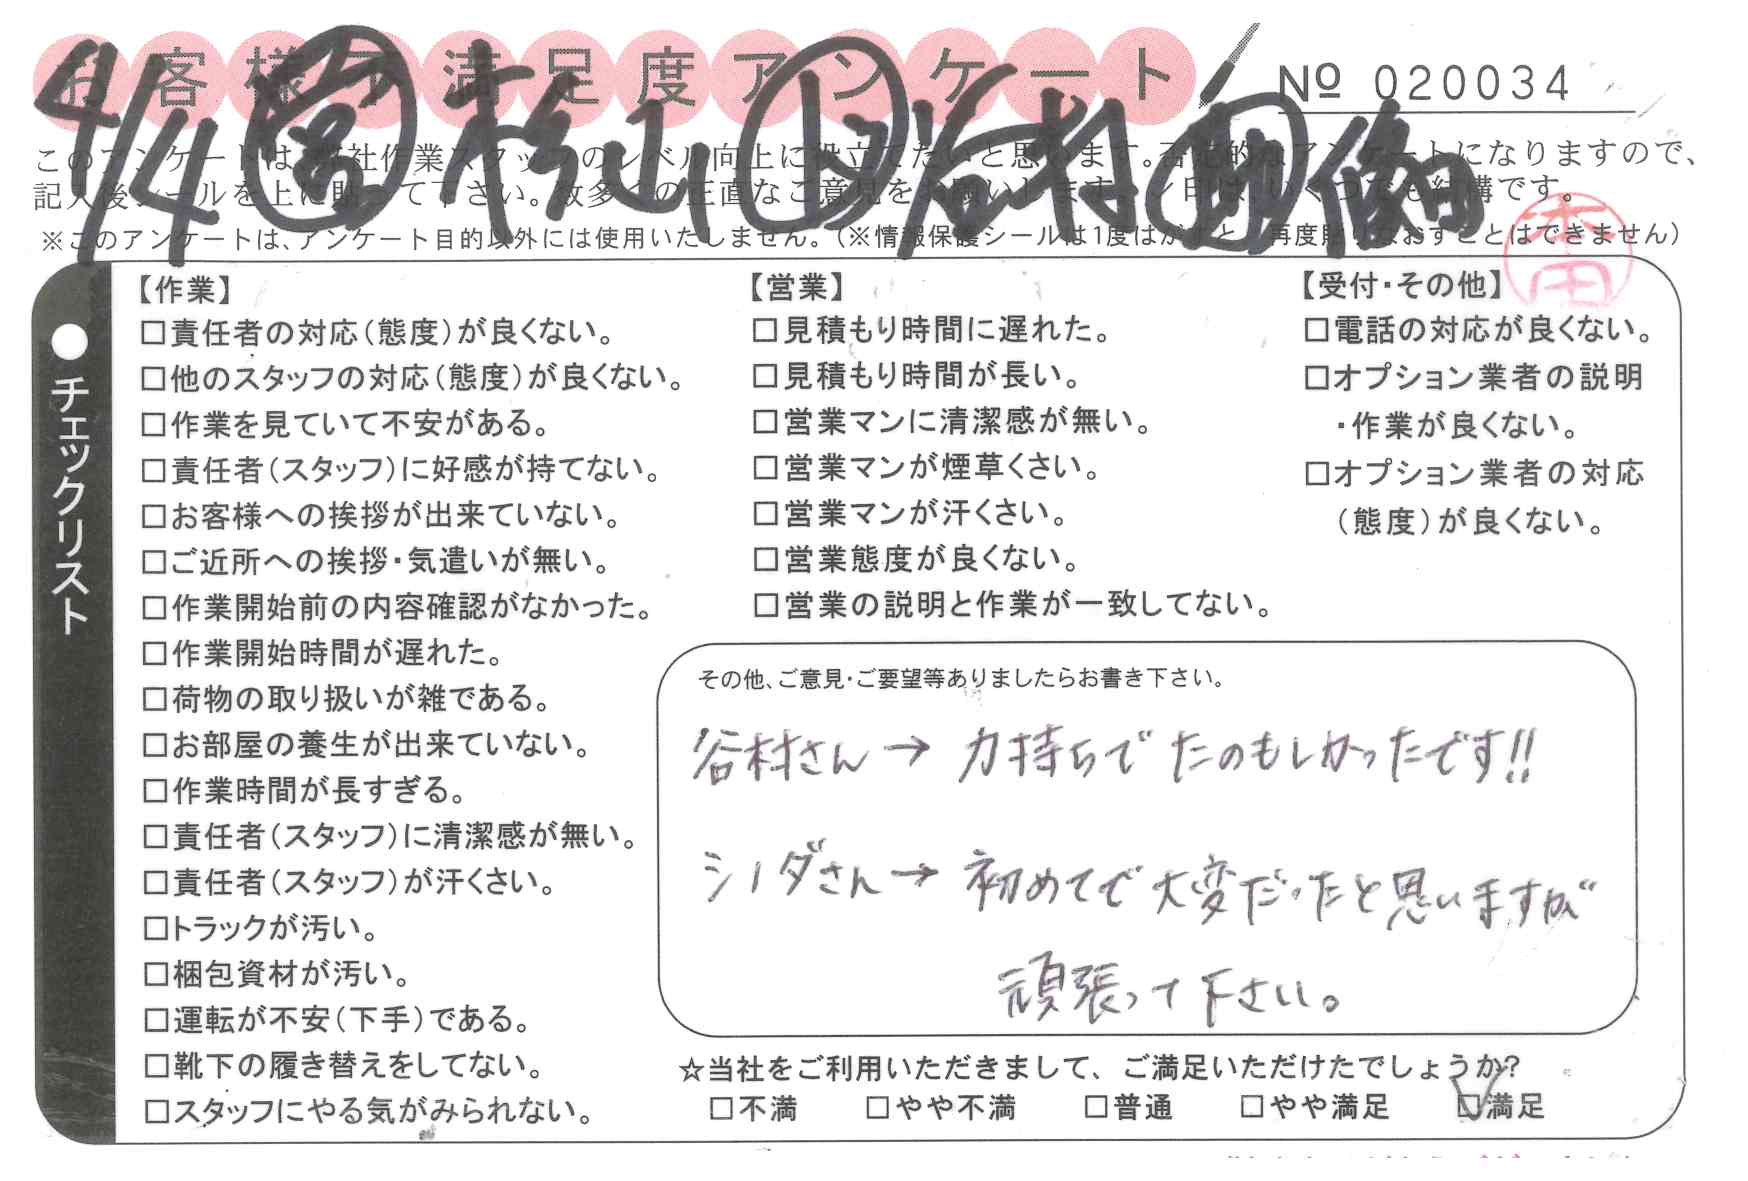 お客様不満足度アンケート
№ 020034
4/4 営 杉山 谷村
このアンケートは、弊社作業スタッフのレベル向上に役立てたいと思います。否定的なアンケートになりますので、
記入後シールを上に貼って下さい。数多くの正直なご意見をお願いします。レ印は、いくつでも結構です。
※このアンケートは、アンケート目的以外には使用いたしません。(※情報保護シールは1度はがすと、再度貼りなおすことはできません)
本田
●チェックリスト
【作業】
□責任者の対応(態度)が良くない。
□他のスタッフの対応(態度)が良くない。
□作業を見ていて不安がある。
□責任者(スタッフ)に好感が持てない。
□お客様への挨拶が出来ていない。
□ご近所への挨拶・気遣いが無い。
□作業開始前の内容確認がなかった。
□作業開始時間が遅れた。
□荷物の取り扱いが雑である。
□お部屋の養生が出来ていない。
□作業時間が長すぎる。
□責任者(スタッフ)に清潔感が無い。
□責任者(スタッフ)が汗くさい。
□トラックが汚い。
□梱包資材が汚い。
□運転が不安(下手)である。
□靴下の履き替えをしてない。
□スタッフにやる気がみられない。
【営業】
□見積もり時間に遅れた。
□見積もり時間が長い。
□営業マンに清潔感が無い。
□営業マンが煙草くさい。
□営業マンが汗くさい。
□営業態度が良くない。
□営業の説明と作業が一致してない。
【受付・その他】
□電話の対応が良くない。
□オプション業者の説明
・作業が良くない。
□オプション業者の対応
(態度)が良くない。
その他、ご意見・ご要望等ありましたらお書き下さい。
谷村さん→ 力持ちで たのもしかったです!!
シノダさん→ 初めてで 大変だったと思いますが
頑張って下さい。
☆当社をご利用いただきまして、ご満足いただけたでしょうか?
□不満 □やや不満 □普通 □やや満足 ☑満足